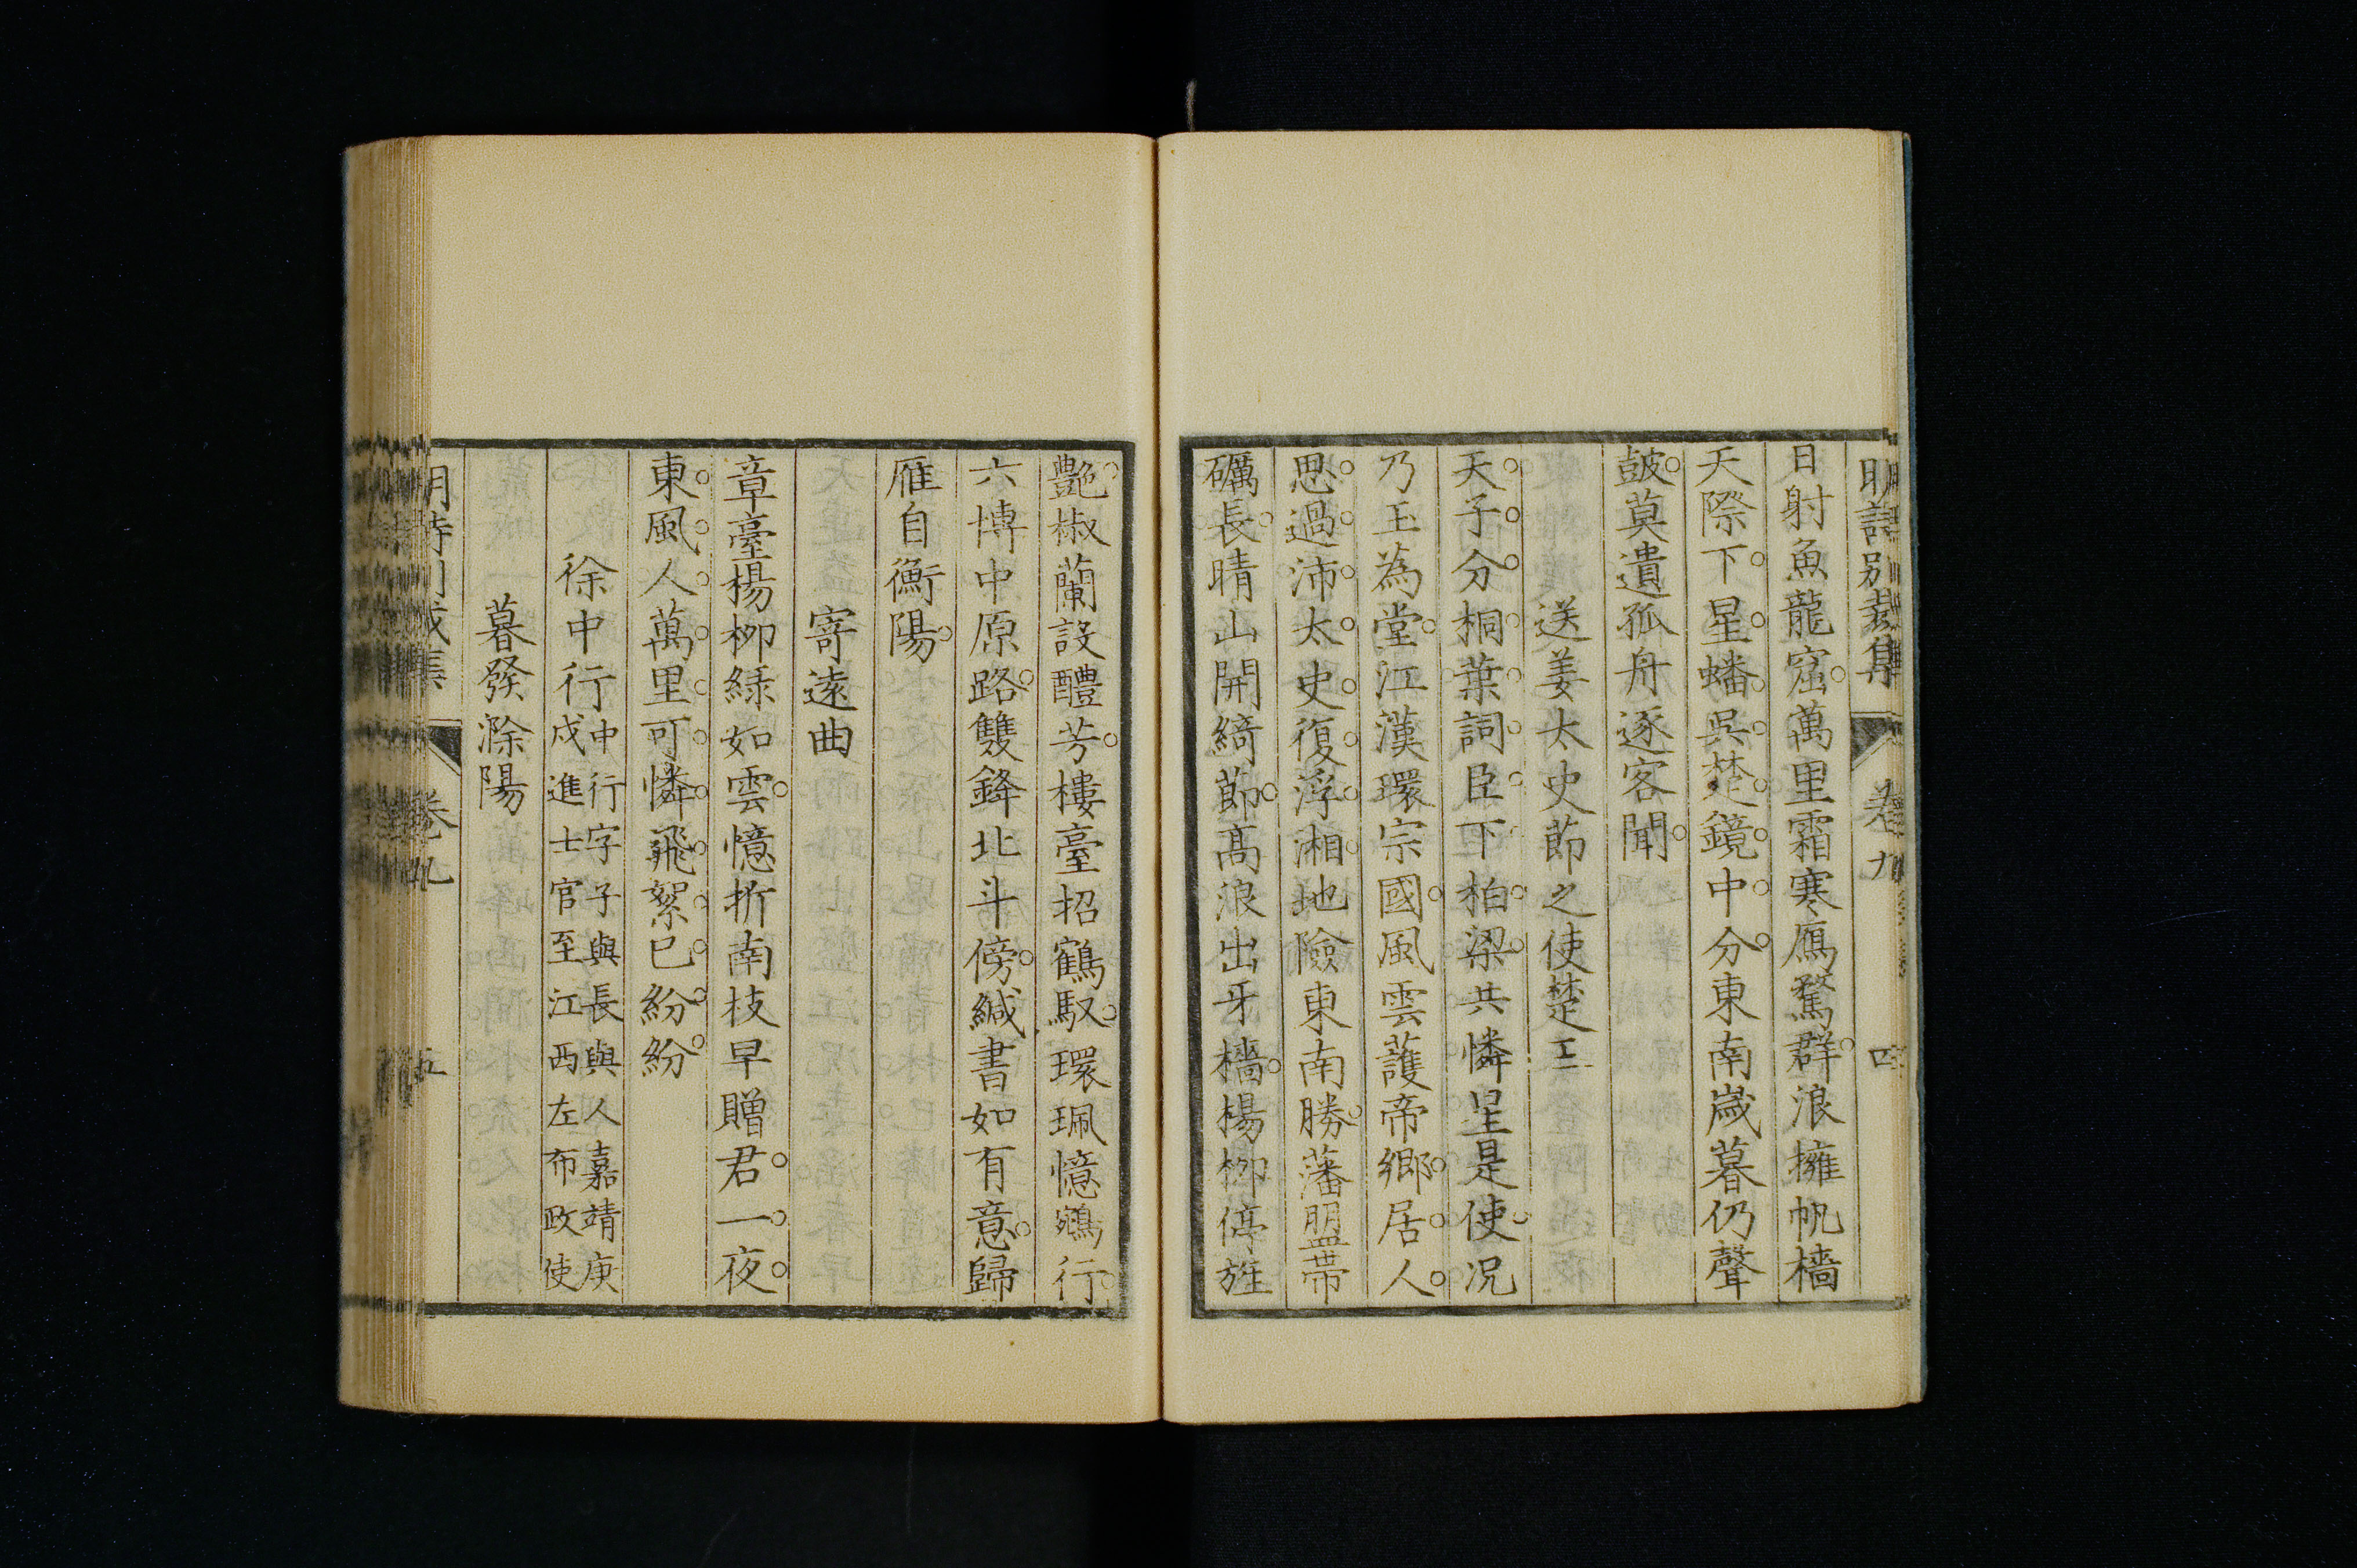 明詩別裁集 卷九 四
日射魚龍窟萬里霜寒鴈驚群浪擁帆檣
天際下星蟠吳楚鏡中分東南歲暮仍聲
鼓莫遣孤舟逐客聞
送姜太史節之使楚王
天子分桐葉詞臣下柏梁共憐星是使况
乃玉為堂江漢環宗國風雲護帝鄉居人
思過沛太史復浮湘地險東南勝藩盟帶
礪長晴山開綺節高浪出牙檣楊柳停旌
艷椒蘭設醴芳樓臺招鶴馭環珮憶鵷行
六博中原路雙鋒北斗傍緘書如有意歸
雁自衡陽
寄遠曲
章臺楊柳綠如雲憶折南枝早贈君一夜
東風人萬里可憐飛絮已紛紛
徐中行
中行字子與長與人嘉靖庚
戌進士官至江西左布政使
暮發滁陽
明詩別裁集 卷九 五